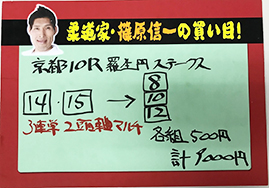 柔道家・篠原信一の買い目!
京都10R 羅生門ステークス
8
14・15→10
12
3連単 2頭軸マルチ
各組500円
計9000円